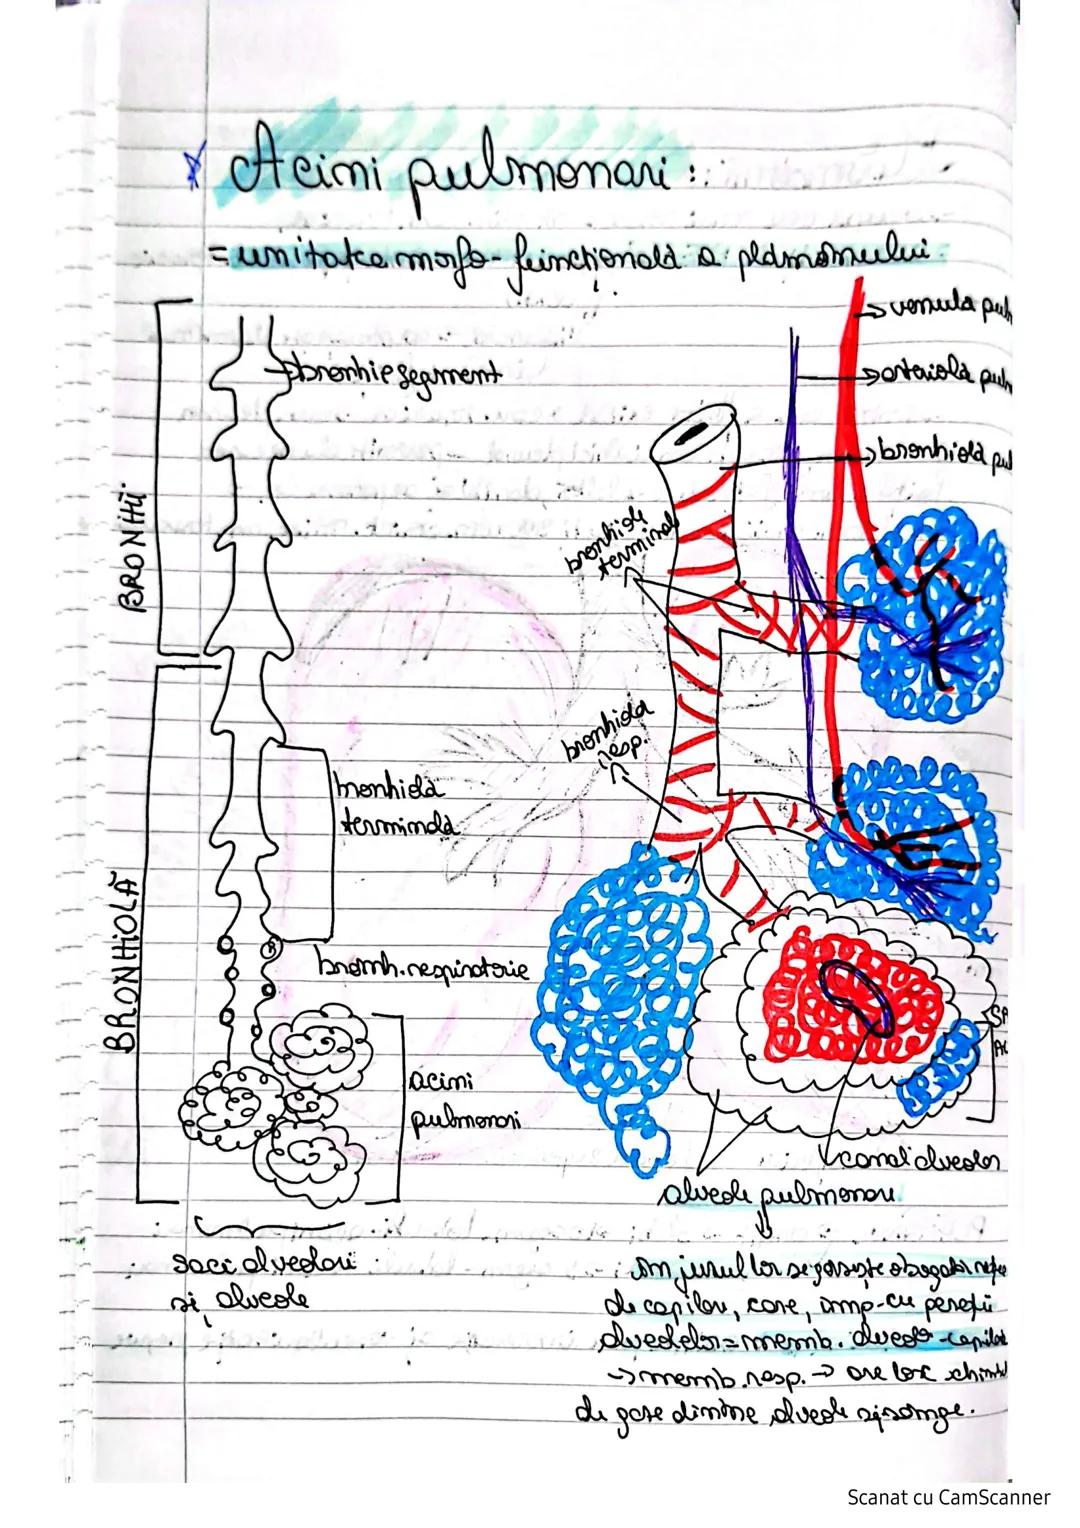 Acini pulmonari:
= unitatea morfo-funcțională a plămânului.
BRONHII
bronhie segment
BRONHIOLĂ
bronhiolă
terminală
bronh. respiratorie
acini
pulmonari
saci alveolari
și alveole
→ venula pul
→ arteriola pulm
→ bronhiolă pul
bronhiole
terminal
bronhiola
resp.
canal alveolar
alveole pulmonare
în jurul lor se găsește o bogată rețea
de capilare, care, împ-cu pereții
alveolelor = memb. alveolo-capilar
→ memb. resp. → are loc schimbul
de gaze dintre alveole și sânge.
Scanat cu CamScanner